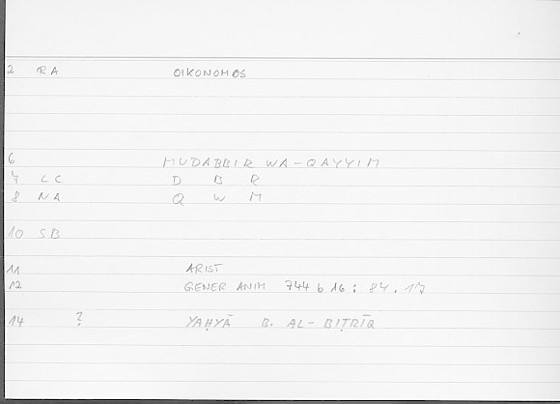 2 RA OIKONOMOS
6 MUDABBIR WA-QAYYIM
7 LC D B R
8 NA Q W M
10 SB
11 ARIST
12 GENER ANIM 744 b 16 : 84 . 17
14 ? YAḤYĀ B. AL-BIṬRĪQ